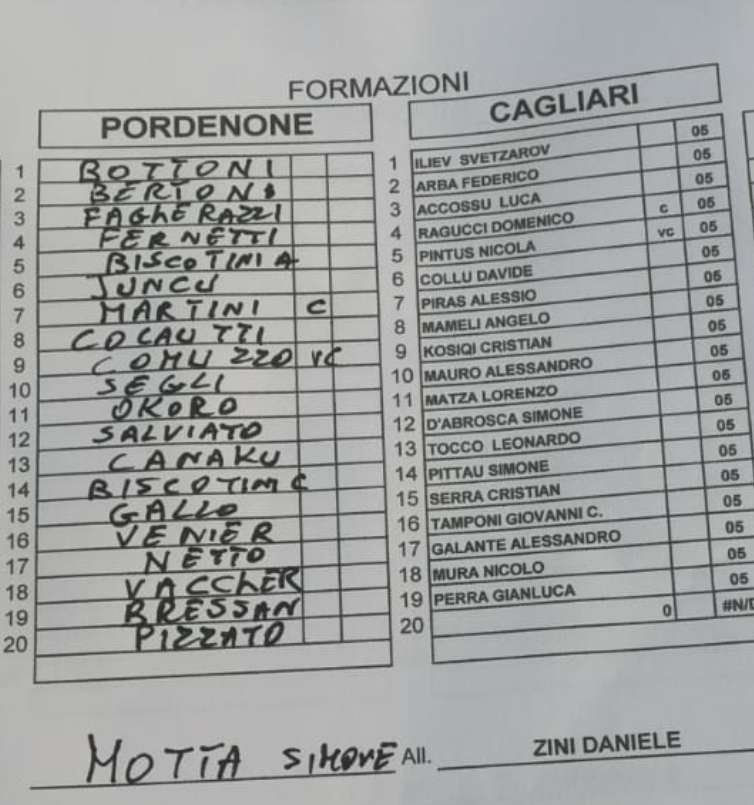 FORMAZIONI
PORDENONE
1 BOTTONI
2 BERTONI
3 FAGHERAZZI
4 FERNETTI
5 BISCOTIN A
6 JUNCU
7 MARTINI C
8 COCAUTTI
9 COMUZZO VC
10 SEGLI
11 OKORO
12 SALVIATO
13 CANAKU
14 BISCOTIN C
15 GALLO
16 VENIER
17 NETTO
18 VACCHER
19 BRESSAN
20 PIZZATO
MOTTA SIMONE
CAGLIARI
1 ILIEV SVETZAROV 05
2 ARBA FEDERICO 05
3 ACCOSSU LUCA 05
4 RAGUCCI DOMENICO c 05
5 PINTUS NICOLA vc 05
6 COLLU DAVIDE 05
7 PIRAS ALESSIO 05
8 MAMELI ANGELO 05
9 KOSIQI CRISTIAN 05
10 MAURO ALESSANDRO 05
11 MATZA LORENZO 05
12 D'ABROSCA SIMONE 05
13 TOCCO LEONARDO 05
14 PITTAU SIMONE 05
15 SERRA CRISTIAN 05
16 TAMPONI GIOVANNI C. 05
17 GALANTE ALESSANDRO 05
18 MURA NICOLO 05
19 PERRA GIANLUCA 05
20 0 #N/D
All. ZINI DANIELE